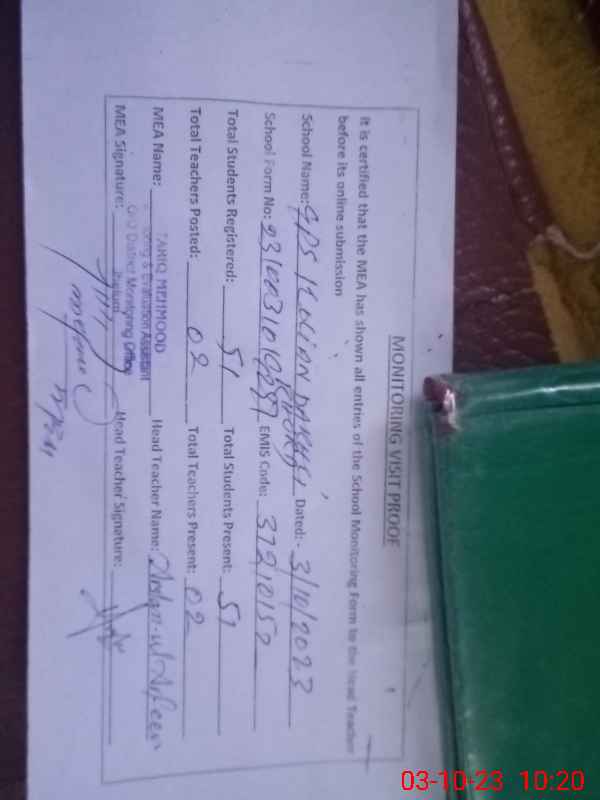 MONITORING VISIT PROOF
It is certified that the MEA has shown all entries of the School Monitoring Form to the Head Teacher
before its online submission
School Name: GPS Dated:- 3/10/2023
School Form No: EMIS Code: 37210152
Total Students Registered: 51 Total Students Present: 51
Total Teachers Posted: 02 Total Teachers Present: 02
MEA Name: TARIQ MEHMOOD Head Teacher Name:
Monitoring & Evaluation Assistant
O/O District Monitoring Officer
MEA Signature: Head Teacher Signature:
03-10-23 10:20